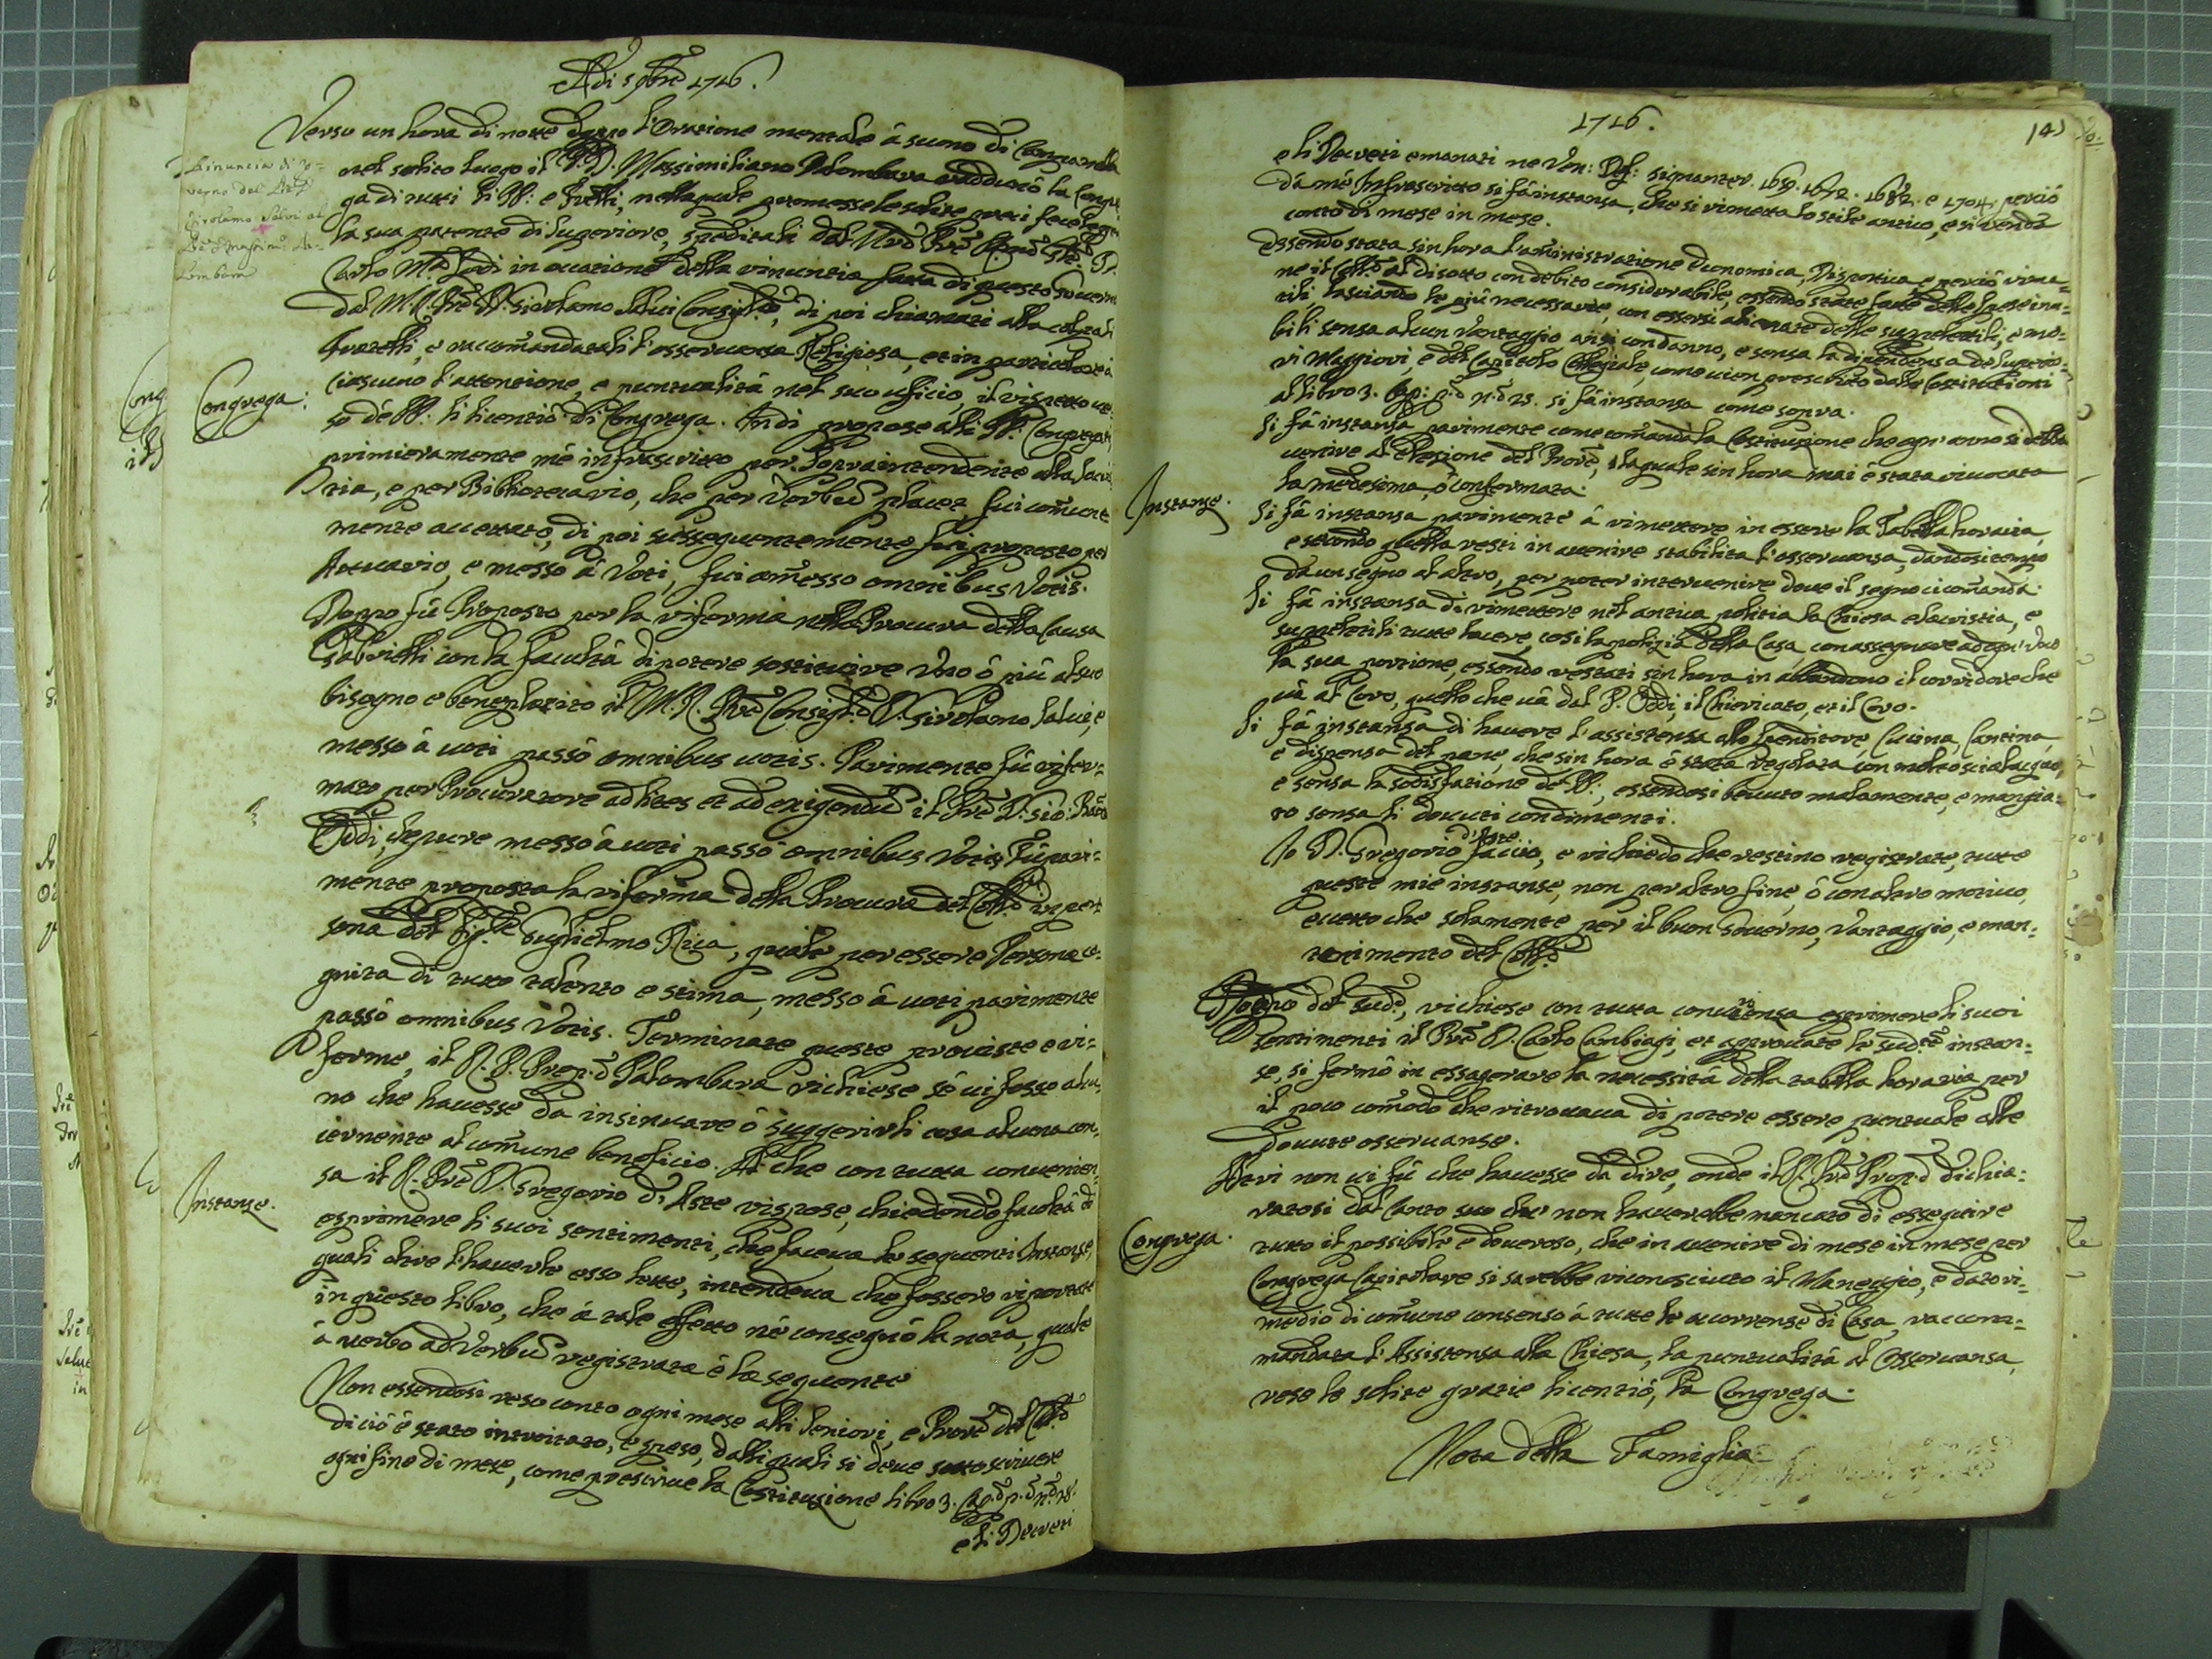 Adi 5 9bre 1716.
Verso un hora di notte doppo l'Oratione mentale à suono di Campanella
nel solito luogo il P.D. Massimiliano Palombara raddunò la Congre
ga di tutti li PP: e Frelli, nella quale premesse le solite preci fece leggere
la sua patente di Superiore, speditali dal Nro Pre
Carlo Ma Lodi in occatione della rinuntia fatta di questo Governo
dal M.R. Pre D. Girolamo Salvi Consiglre, di poi chiamati alla colpa li
Fratelli, e raccomandatali l'osservanza Religiosa, et in particolare à
ciascuno l'attentione, e puntualità nel suo ufficio, il rispetto ver
so de PP. li licentiò di Congrega. Indi propose alli PP. Congregati
primieramente mè infrascritto per Sopraintendente alla Sacri
stia, e per Bibliotecario, che per Verbum placet fui comune
mente accettato, di poi sussequentemente fui proposto per
Attuario, e messo à Voti, fui amesso omnibus Votis.
Doppo fù Proposto per la riforma nella Procura della Causa
Gabrielli con la facultà di potere sostituire Uno ò più al suo
bisogno e beneplacito il M.R. Pre Consiglre D. Girolamo Salvi, e
messo à uoti passò omnibus uotis. Parimente fù rifer-
mato per Procuratore ad lites et ad exigendum il Pre D. Gio: Batta
Oddi, che pure messo à uoti passò omnibus Votis. Fù pari-
mente proposta la riforma della Procura del Collo in per
sona del Sigre Guglielmo Ricci, quale per essere Persona co-
gnita di tutto talento e stima, messo à uoti parimente
passò omnibus Votis. Terminate queste prouiste e ri-
ferme, il R.P. Prepto Palombara richiese sè ui fosse alcu-
no che hauesse da insinuare ò suggerirli cosa alcuna con-
cernente al comune beneficio. Al che con tutta convenien-
za il R. Pre D. Gregorio d'Aste rispose, chiedendo facoltà di
esprimere li suoi sentimenti, che faceua le seguenti Instanze,
quali oltre l'hauerle esso lette, intendeua che fossero riportate
in questo libro, che à tale effetto nè consegnò la nota, quale
à uerbo ad Verbum registrata è la seguente
Non essendosi reso conto ogni mese alli Seniori, e Prore del Collo
di ciò è stato introitato, e speso, dalli quali si deue sottoscriuere
ogni fine di mese, come prescriue la Costituzione libro 3.
e li Decreti
Rinuncia di go-
verno del
Girolamo Salvi al
Pre Massimo Pa-
lombara
Congrega:
Instanze.
1716.
141
e li Decreti emanati ne Ven: Def: signanter. 1659. 1672. 1682. e 1704. perciò
da mè Infrascritto si fà instanza, che si rimetta lo stile antico, e si renda
conto di mese in mese.
Essendo stata sin hora l'aministrazione Economica, Dispotica e perciò rima-
ne il Collo al disotto con debito considerabile, essendo state fatte delle spese inu-
tili lasciando le più necessarie, con essersi alienate delle suppellettili, e mo-
bili senza alcun Vantaggio anzi con danno, e senza la dipendenza de Superio-
ri Maggiori, e del Capitolo Collegiale, come uien prescritto dalle Costitutioni
al libro 3. Cap: p.o n.o 23. si fà instanza come sopra.
Si fà instanza parimente come comanda la Costituzione che ogn'anno si debba
uenire al Elezione del Prore, la quale sin hora mai è stata riuocata
la medesima, ò confermata.
Si fà instanza parimente à rimettere in essere la Tabella horaria,
e secondo quella resti in auuenire stabilita l'osseruanza, dandosi tempo
da un segno al altro, per poter interuenire doue il segno ci comanda.
Si fà instanza di rimettere nel antica politia la Chiesa e sacristia, e
suppelletili tutte sacre, così la politia della Casa, con assegnare ad ogn'Uno
la sua portione, essendo restati sin hora in abbandono il corridore che
uà al Coro, quello che uà dal P. Oddi, il Chiericato, et il Coro.
Si fà instanza di hauere l'assistenza allo Spenditore, Cucina, Cantina,
e dispensa del pane, che sin hora è stata regolata con molto scialacquo,
e senza la sodisfatione de PP., essendosi beuuto malamente, e mangia-
to senza li douuti condimenti.
Io D. Gregorio d'Aste faccio, e richiedo che restino registrate, tutte
queste mie instanze, non per altro fine, ò con altro motiuo,
eccetto che solamente per il buon Gouerno, Vantaggio, e man-
tenimento del Collo.
Doppo del sudo, richiese con tutta conuenienza esprimere li suoi
sentimenti il Pre D. Carlo Canbiagi, et approuate le sudte instan-
ze, si fermò in essagerare la necessità della tabella horaria per
il poco comodo che ritrouaua di potere essere puntuale alle
douute osseruanze.
Altri non ui fù che hauesse da dire, onde il R. Pre Prepto dichia-
ratosi dal canto suo che non hauerebbe mancato di esseguire
tutto il possibile e doueroso, che in auuenire di mese in mese per
Congrega Capitolare si sarebbe riconosciuto il Maneggio, e dato ri-
medio di comune consenso à tutte le occorrenze di Casa, raccoma-
mandata l'Assistenza alla Chiesa, la puntualità al Osseruanza,
rese le solite gratie licentiò, la Congrega.
Nota della Famiglia
Instanze.
Congrega.